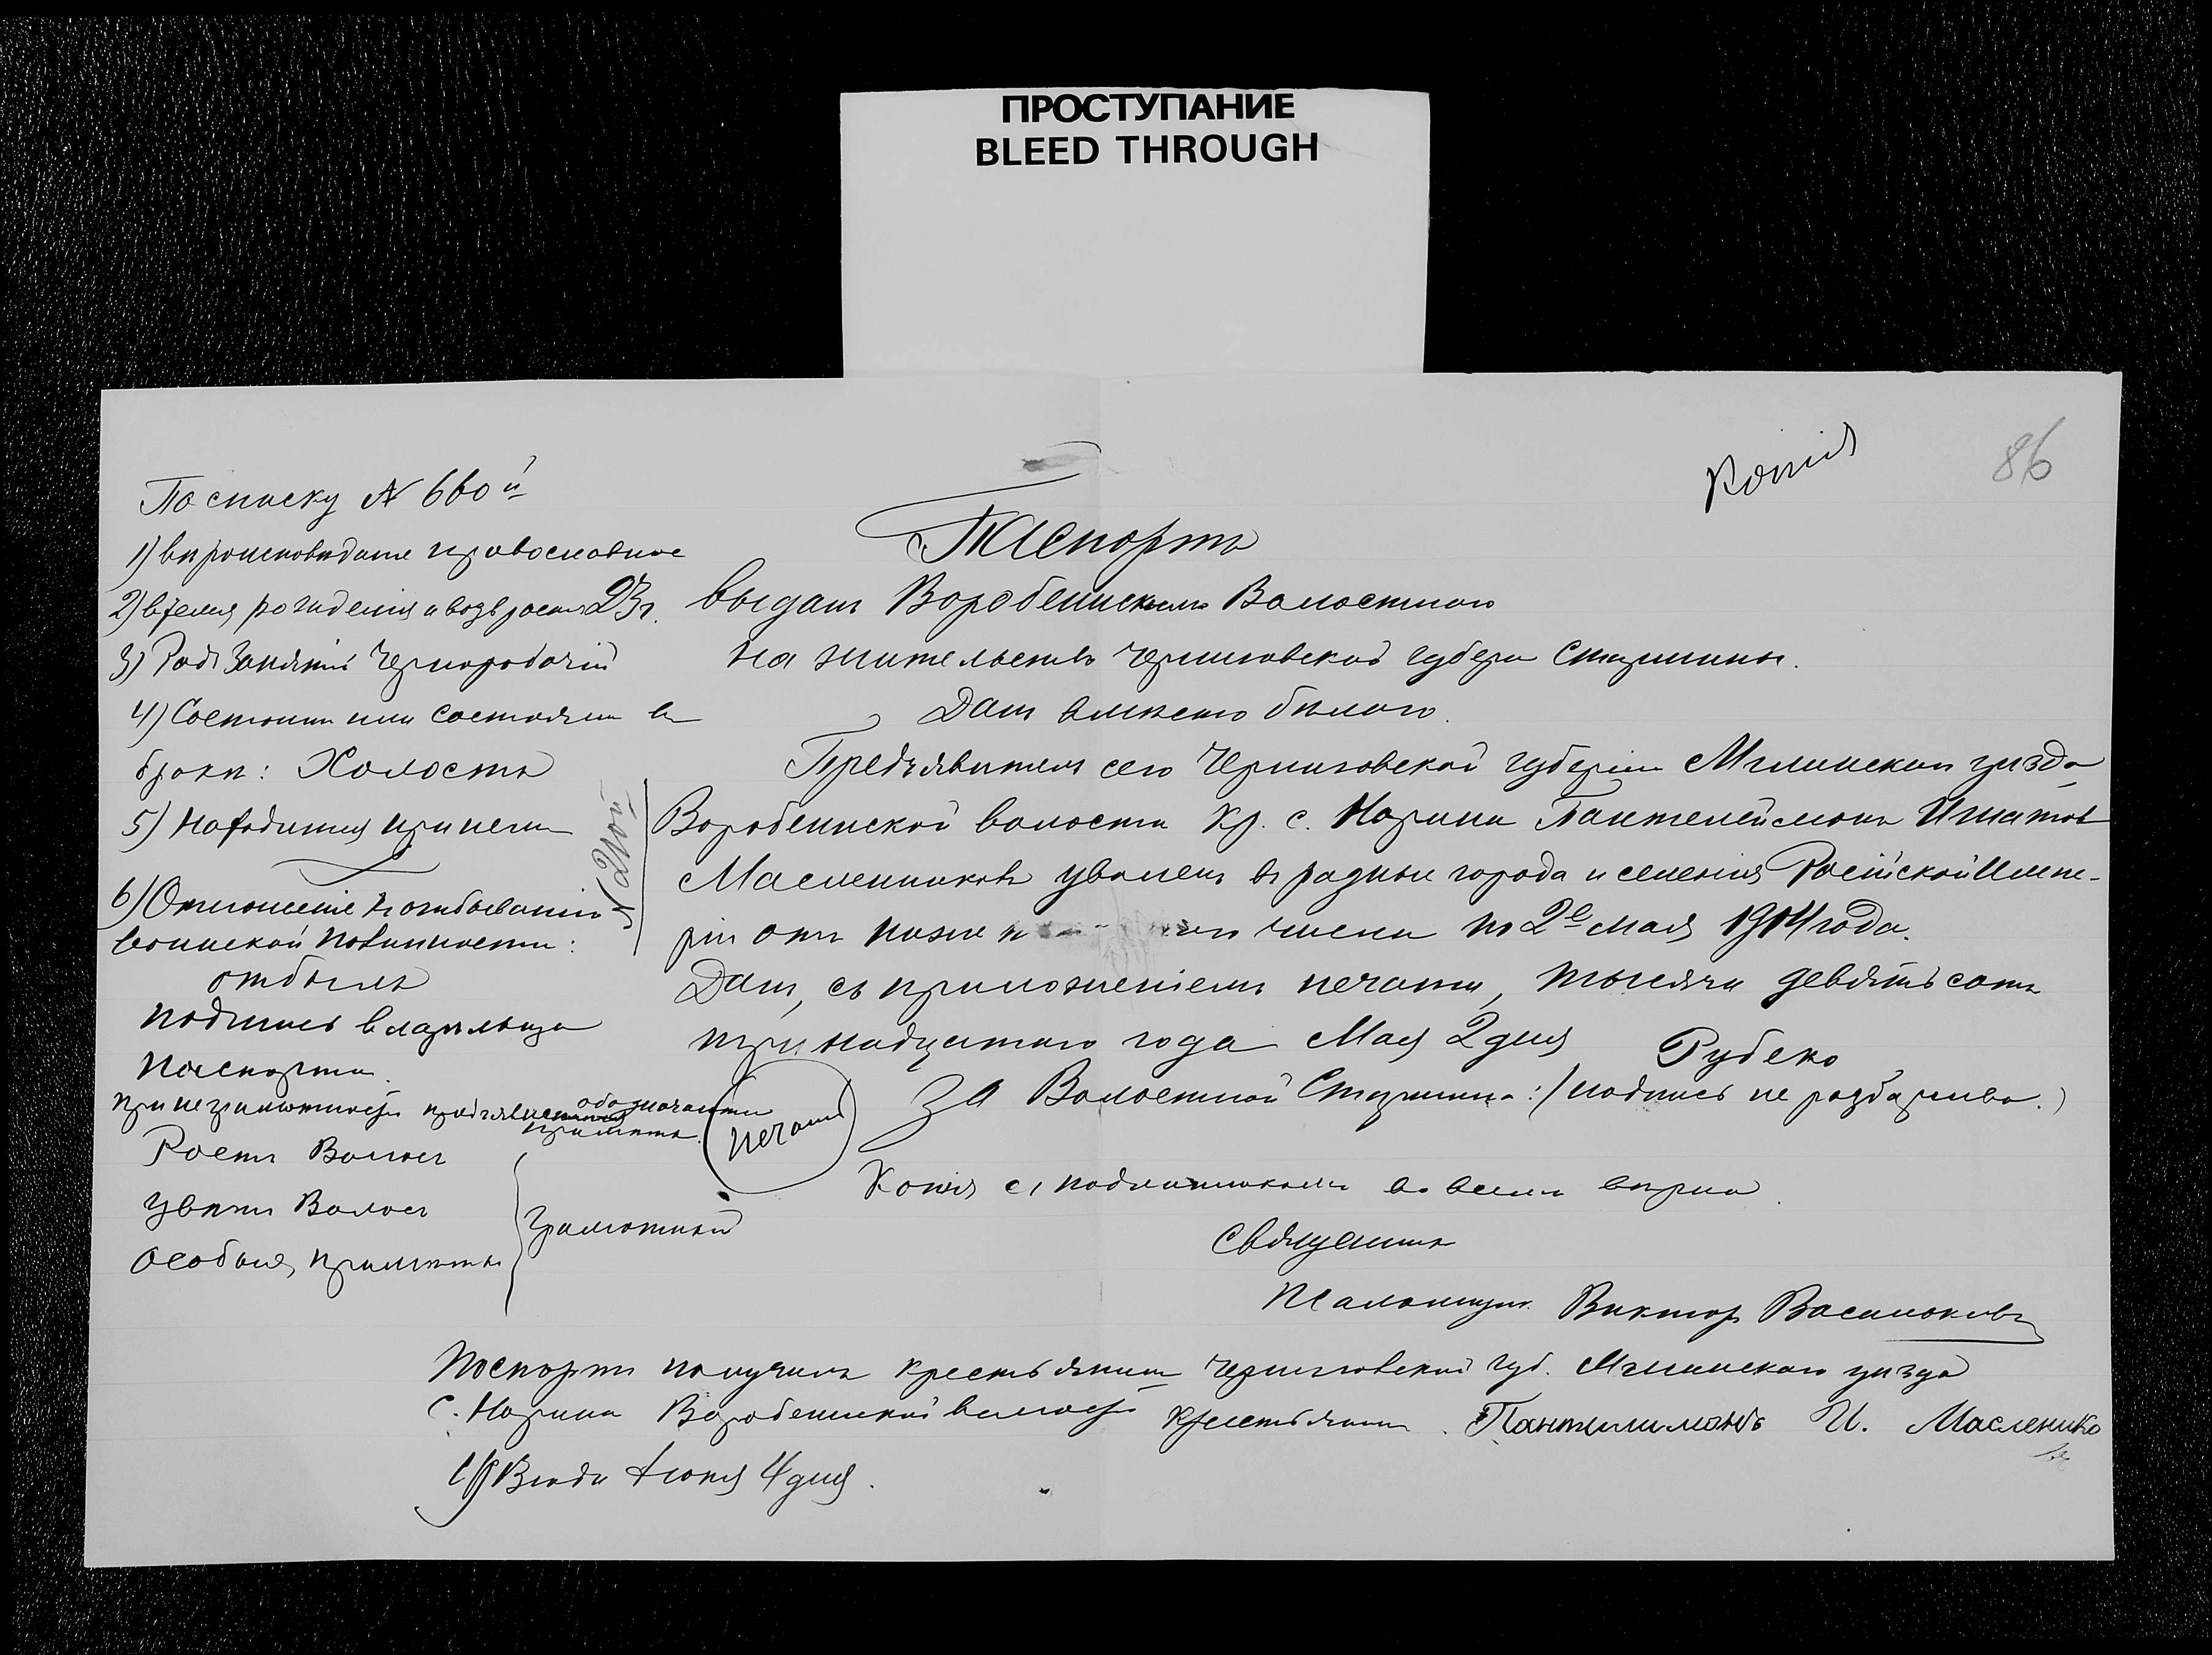 ПРОСТУПАНИЕ
BLEED THROUGH
Копия
86
По списку № 660й
1) вѣроисповѣдание православное
2) время рождения и возраст 23 г.
3) Род Занятий Чернорабочий
4) Состоит или состоял в
браке: Холостъ
5) Находится при нем
6) Отношение к отбыванию
воинской повинности:
отбылъ
подпись владельца
паспорта.
при неграмотности предъявителя обозначаются
приметы.
Рост Волос
Цвет Волос
Особыя приметы
Грамотный
№ 210й
Паспортъ
выдан Воробеинскимъ Волостного
на жительство Черниговской губерн Старшины.
Дан вместо билаго.
Предъявитель сего Черниговской губернии Мглинскаго уезда
Воробеинской волости Кр. с. Нарина Пантелеймонъ Игнатов
Масленниковъ уволен въ разные города и селения Росийской Импе-
рии от ниже числа по 2е мая 1914 года.
Дан, съ приложением печати, тысяча девятьсотъ
тринадцатаго года Мая 2 дня
Рубеко
За Волостной Старшина: (подпись не разборчива.)
(печать)
Копия с подлинником во всем верна.
Священник
Псаломщик Виктор Васильковъ
Паспортъ получилъ крестьянин Черниговской губ. Мглинскаго уезда
с. Нарина Воробеинской волости крестьянин. Пантилимонъ И. Масленико
въ
1913 года Июня 4 дня.